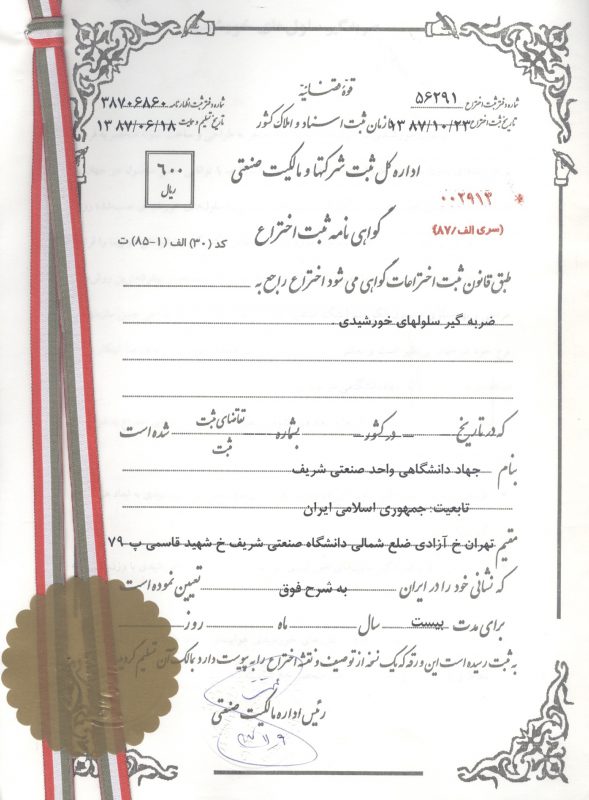 قوۀ قضائیه
شماره دفتر ثبت اختراع ۵۶۲۹۱
شماره دفتر ثبت اظهارنامه ۳۸۷۰۶۸۶۰
سازمان ثبت اسناد و املاک کشور
تاریخ ثبت اختراع ۱۳۸۷/۱۰/۲۳
تاریخ تسلیم و حمایت ۱۳۸۷/۰۶/۱۸
اداره کل ثبت شرکتها و مالکیت صنعتی
۶۰۰
ریال
* ۰۰۲۹۱۳
(سری الف/۸۷)
گواهی نامه ثبت اختراع
کد (۳۰) الف (۱-۸۵) ت
طبق قانون ثبت اختراعات گواهی می شود اختراع راجع به
ضربه گیر سلولهای خورشیدی .
که در تاریخ - در کشور - بشماره - تقاضای ثبت شده است
ثبت
بنام جهاد دانشگاهی واحد صنعتی شریف
تابعیت: جمهوری اسلامی ایران
مقیم تهران خ آزادی ضلع شمالی دانشگاه صنعتی شریف خ شهید قاسمی پ ۷۹
که نشانی خود را در ایران به شرح فوق تعیین نموده است
برای مدت بیست سال ماه روز
به ثبت رسیده است این ورقه که یک نسخه از توصیف و نقشه اختراع را به پیوست دارد بمالک آن تسلیم گردید
رئیس اداره مالکیت صنعتی